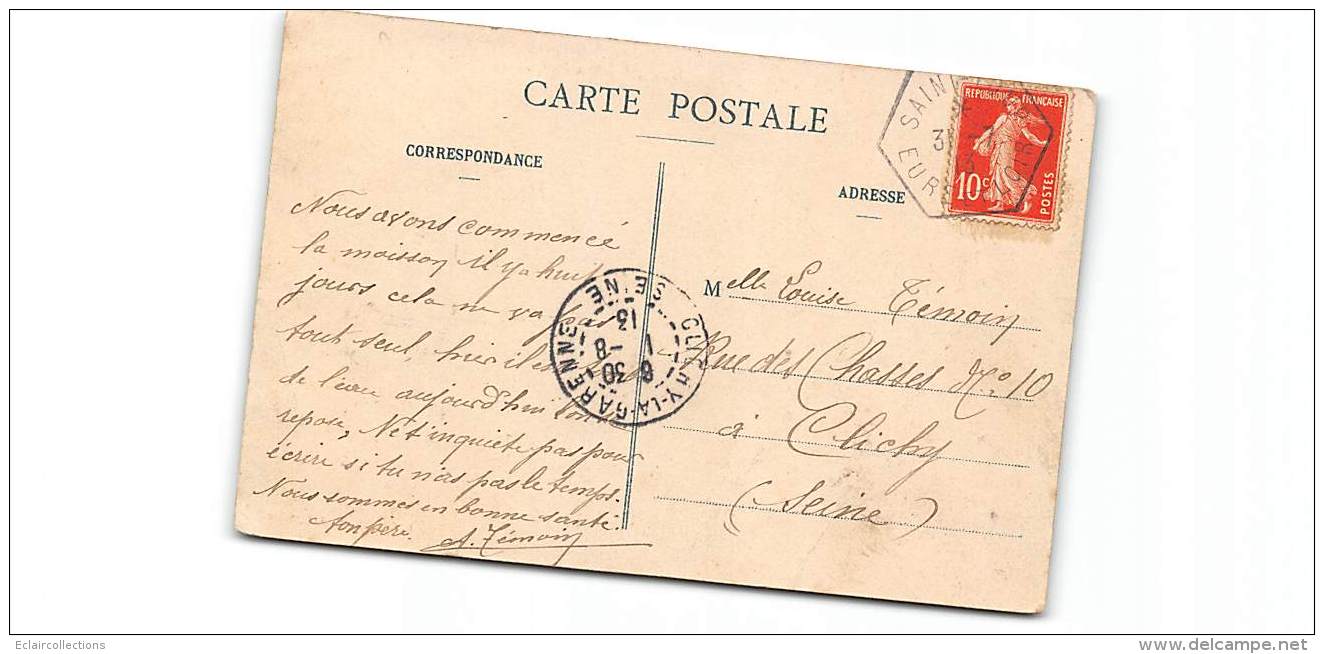 CARTE POSTALE
CORRESPONDANCE
ADRESSE
REPUBLIQUE FRANÇAISE
10c
POSTES
SAIN
31 -7
13
EUR LOIR
Nous avons commencé
la moisson il y a huit
jours cela ne va pas
tout seul, hier il est
de l'eau aujourd'hui
repose, Ne t'inquiète pas pour
écrire si tu n'as pas le temps.
Nous sommes en bonne santé.
ton père. A. Témoin
CLICHY-LA-GARENNE
SEINE
8 30
1 -8
13
Melle Louise Témoin
Rue des Chasses No 10
à Clichy
(Seine)
Eclaircollections
delcampe.net